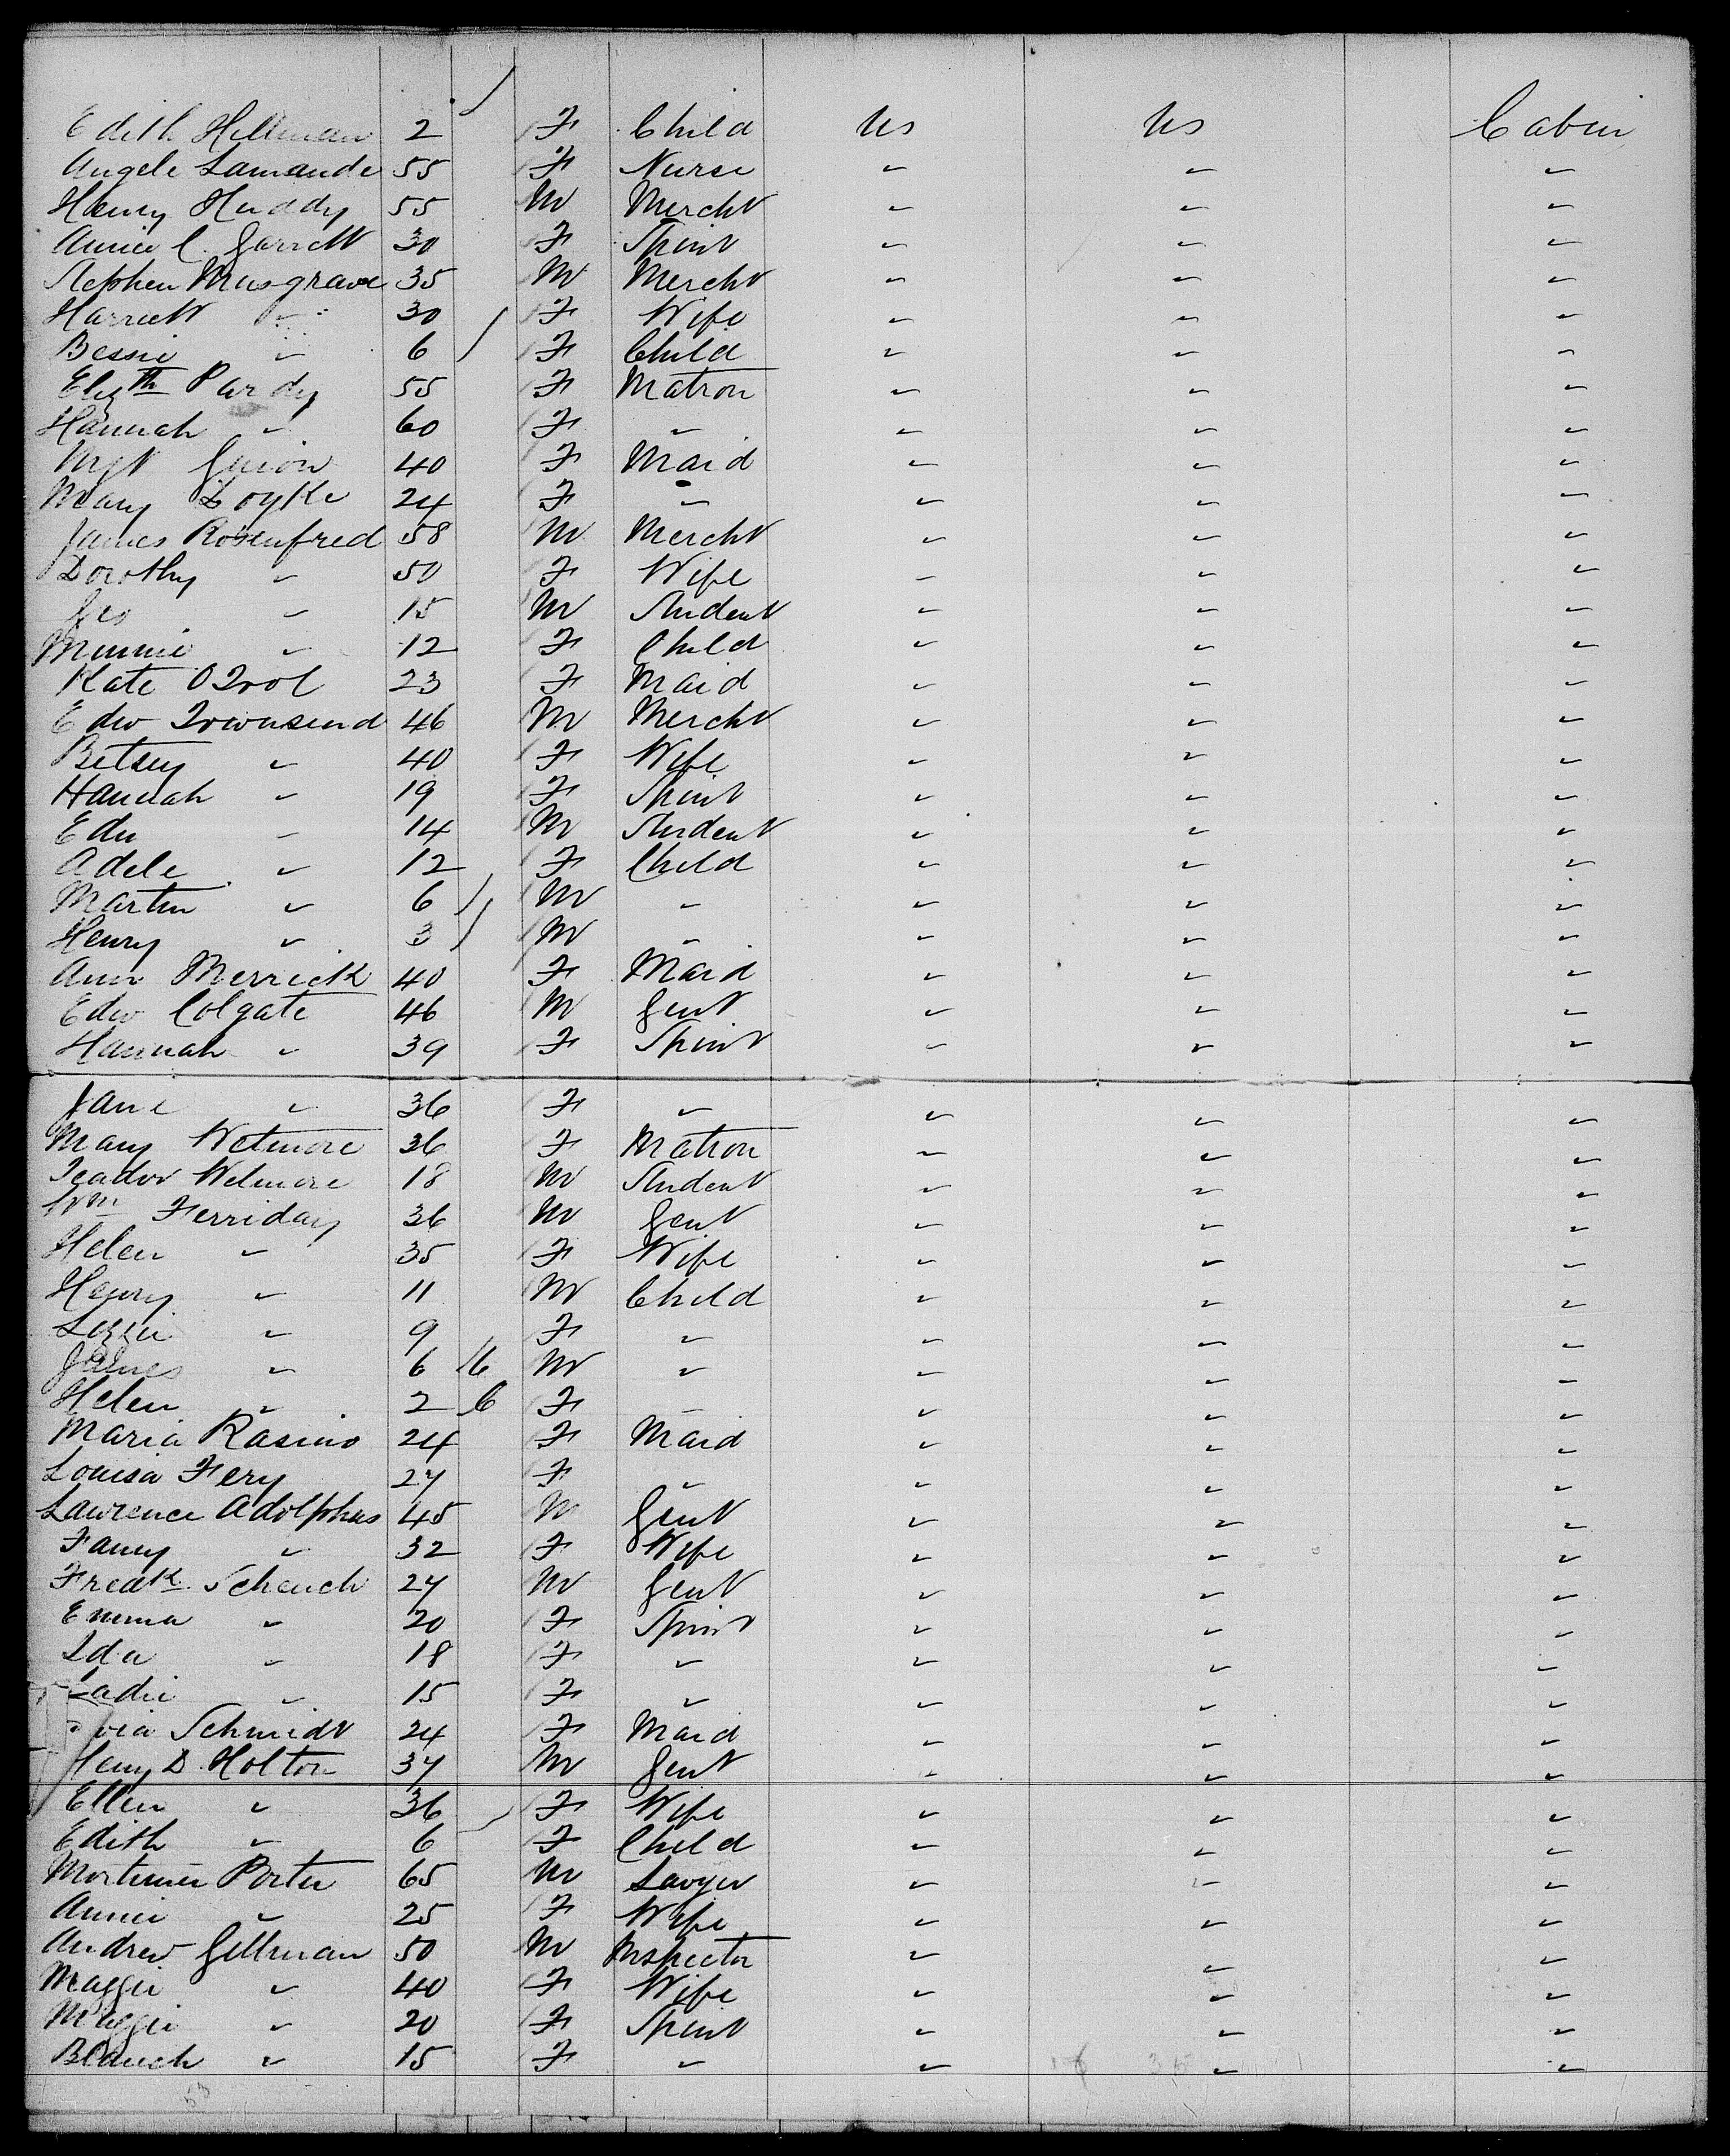 Edith Hillman 2 F Child US US Cabin
Angele Lamande 55 F Nurse " " "
Henry Huddy 55 M Mercht " " "
Annie C. Garrett 30 F Spinst " " "
Stephen Musgrave 35 M Mercht " " "
Harriett " 30 F Wife " " "
Bessie " 6 F Child " " "
Elizth Pardy 55 F Matron " " "
Hannah " 60 F " " " "
Mgt Guion 40 F Maid " " "
Mary Loyke 24 F " " " "
James Rosenfred 58 M Mercht " " "
Dorothy " 50 F Wife " " "
Geo " 15 M Student " " "
Minnie " 12 F Child " " "
Kate OTool 23 F Maid " " "
Edw Townsend 46 M Mercht " " "
Betsey " 40 F Wife " " "
Hannah " 19 F Spinst " " "
Edw " 14 M Student " " "
Adele " 12 F Child " " "
Martin " 6 M " " " "
Henry " 3 M " " " "
Ann Merrick 40 F Maid " " "
Edw Colgate 46 M Gent " " "
Hannah " 39 F Spinst " " "
Jane " 36 F " " " "
Mary Wetmore 36 F Matron " " "
Teador Wetmore 18 M Student " " "
Wm Ferriday 36 M Gent " " "
Helen " 35 F Wife " " "
Henry " 11 M Child " " "
Lizzie " 9 F " " " "
James " 6 M " " " "
Helen " 2 F " " " "
Maria Rasino 24 F Maid " " "
Louisa Fery 27 F " " " "
Lawrence Adolphus 45 M Gent " " "
Fanny " 32 F Wife " " "
Fredk Schench 27 M Gent " " "
Emma " 20 F Spinst " " "
Ida " 18 F " " " "
Sadie " 15 F " " " "
Schmidt 24 F Maid " " "
Henry D. Holton 37 M Gent " " "
Ellen " 36 F Wife " " "
Edith " 6 F Child " " "
Mortimer Porter 65 M Lawyer " " "
Annie " 25 F Wife " " "
Andrew Gillman 50 M Inspector " " "
Maggie " 40 F Wife " " "
Maggie " 20 F Spinst " " "
Blanch " 15 F " " " "
53